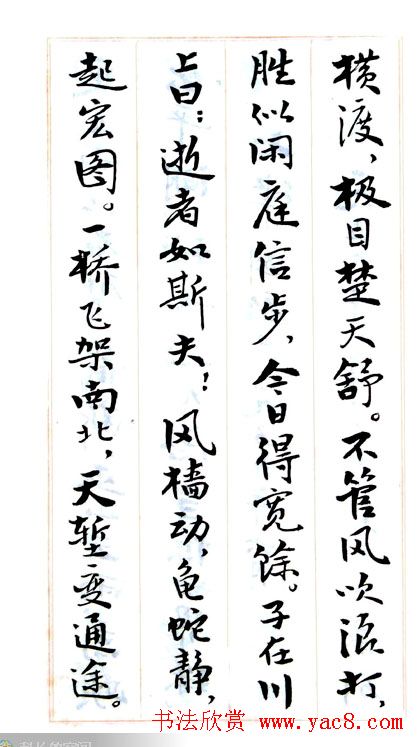 横渡，极目楚天舒。不管风吹浪打，
胜似闲庭信步，今日得宽馀。子在川
上曰：逝者如斯夫！风樯动，龟蛇静，
起宏图。一桥飞架南北，天堑变通途。
书法欣赏 www.yac8.com